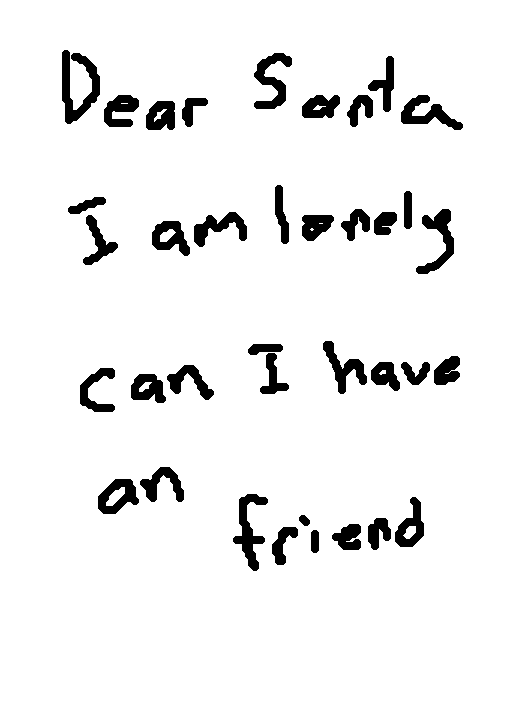 Dear Santa
I am lonely
can I have
an friend